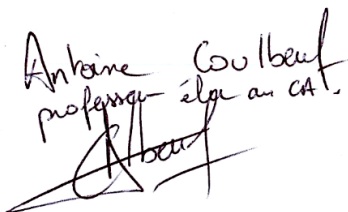 Antoine Coulbeuf
professeur élu au CA.